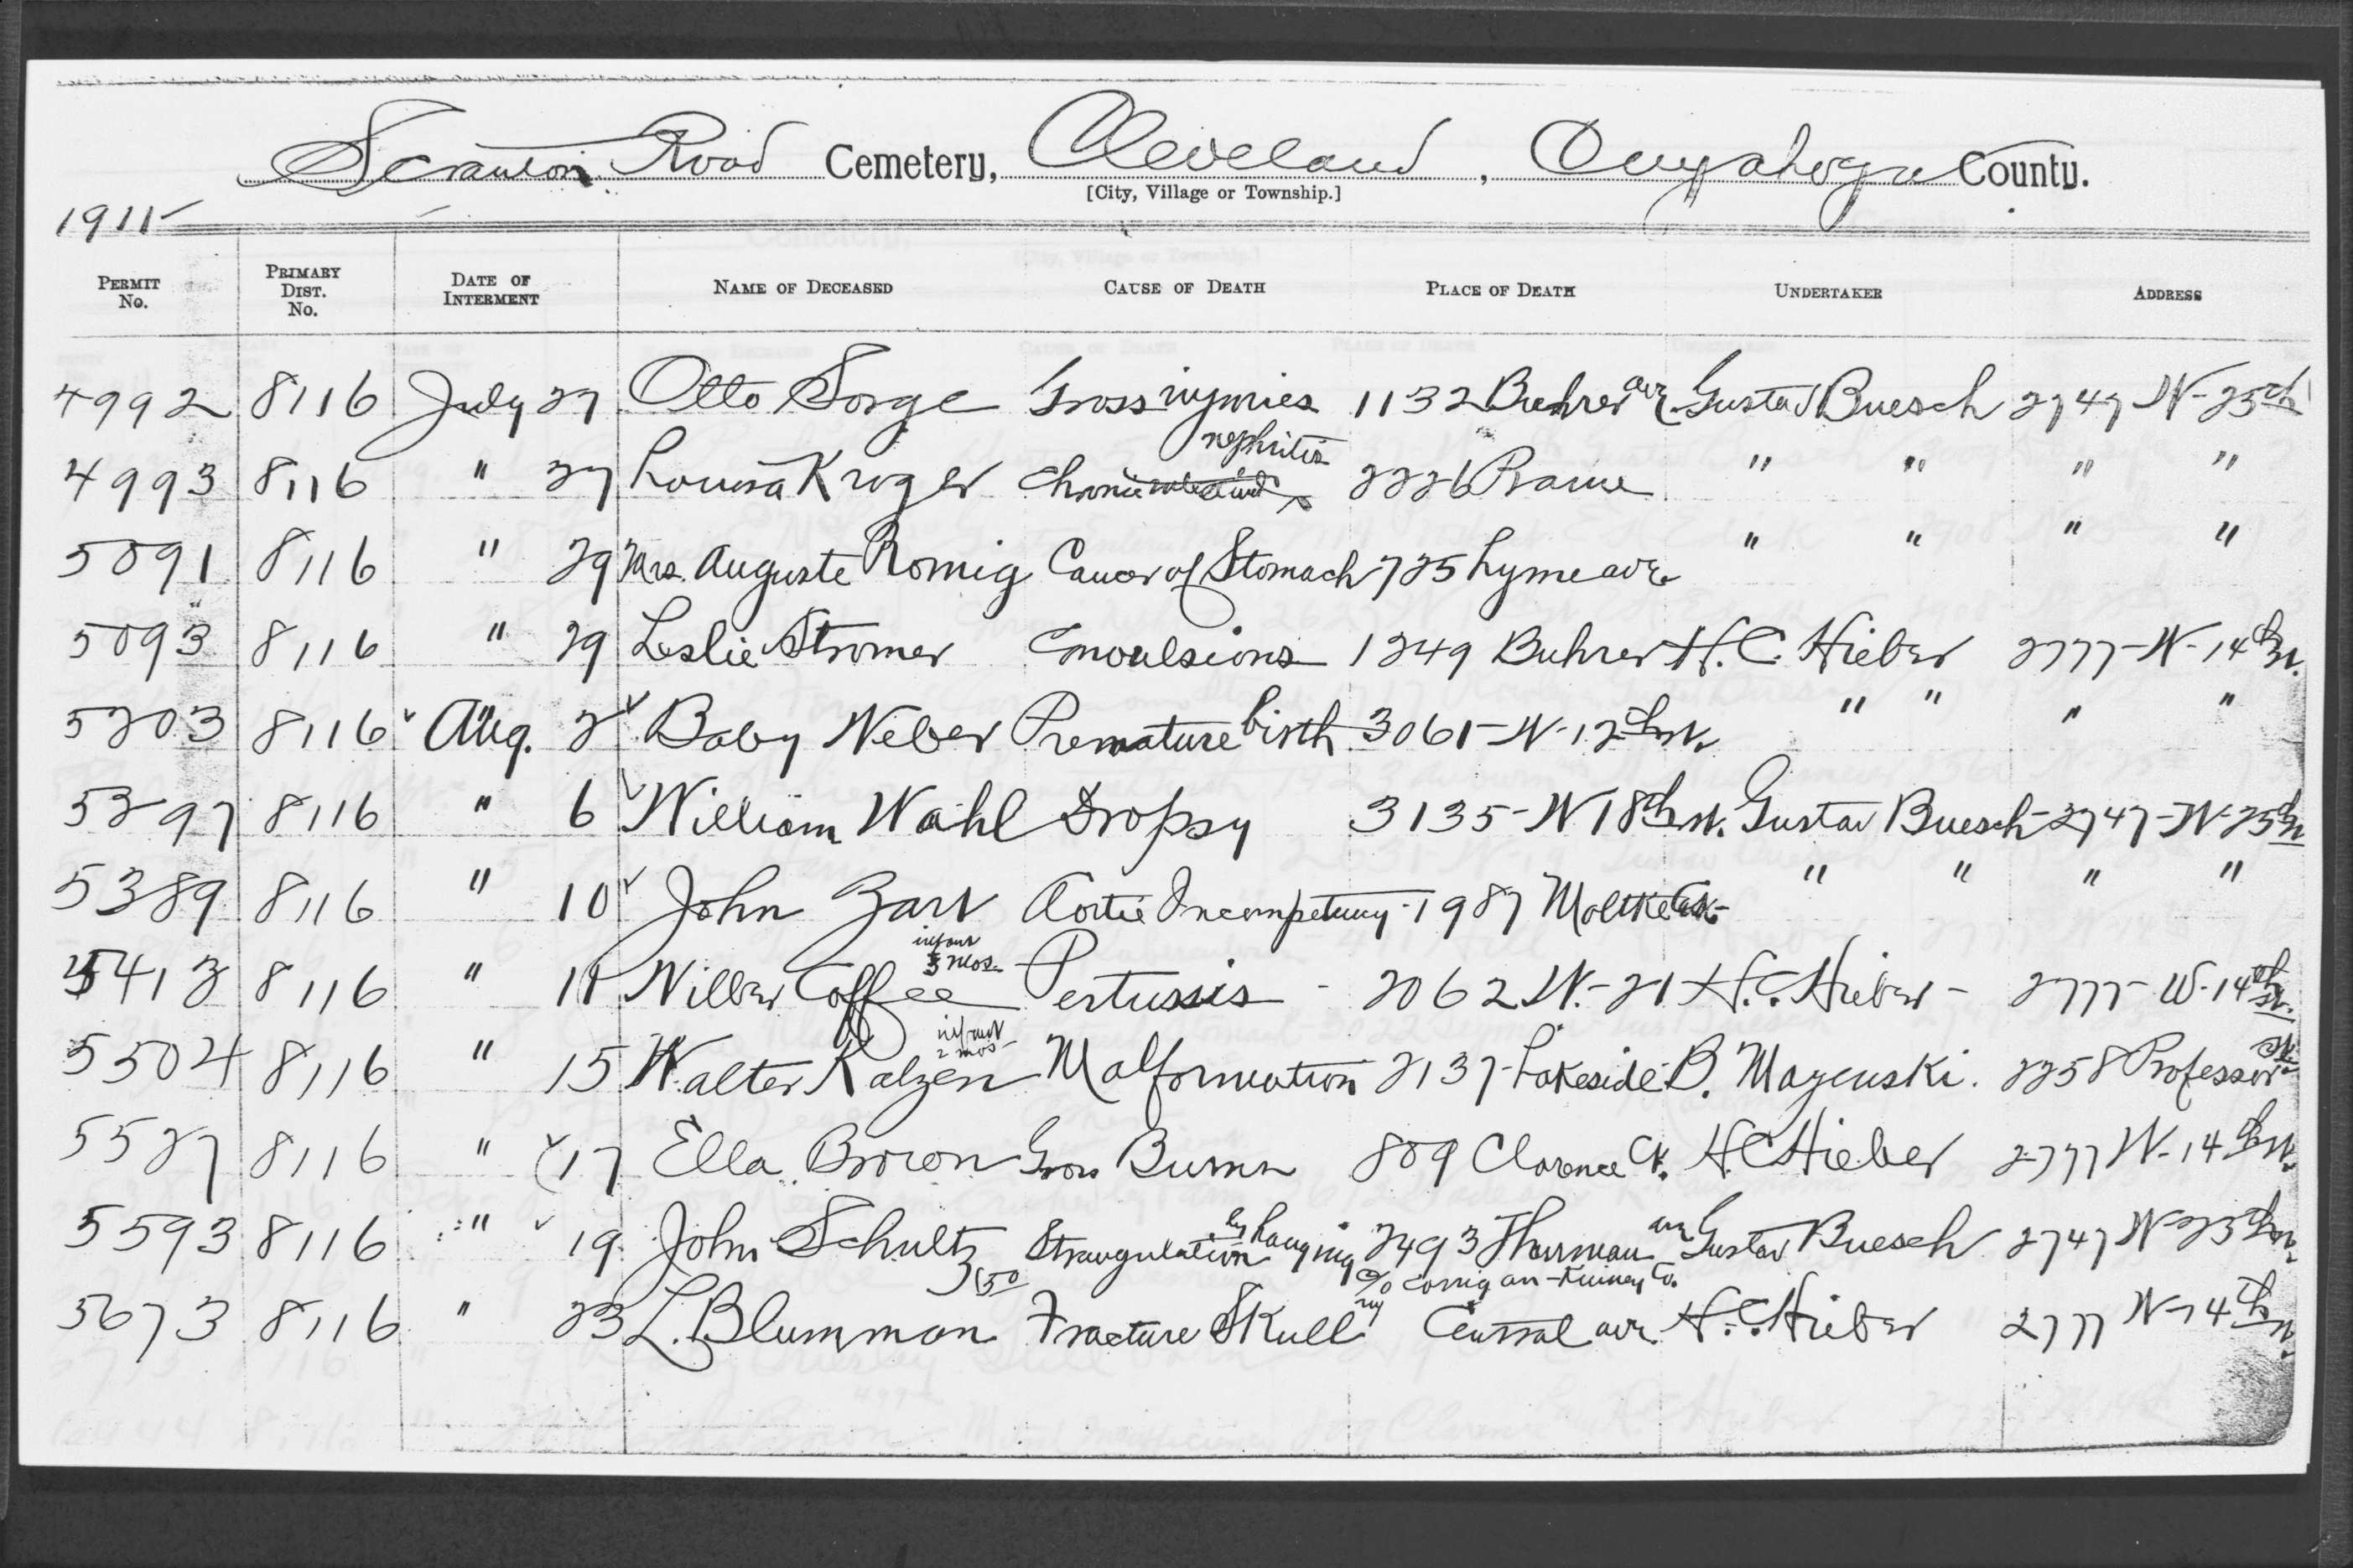 Scranton Road Cemetery, Cleveland, Cuyahoga County.
[City, Village or Township.]
1915
PERMIT No. PRIMARY DIST. No. DATE OF INTERMENT NAME OF DECEASED CAUSE OF DEATH PLACE OF DEATH UNDERTAKER ADDRESS
4992 8116 July 27 Otto Sorge Gross injuries 1132 Buhrer ave Gustav Buesch 2747 W-25th
4993 8116 " 27 Louisa Kruger Chronic nephritis 2226 " " " "
5091 8116 " 29 Mrs. Auguste Romig Cancer of Stomach 725 Lyme ave " " " "
5093 8116 " 29 Leslie Stromer Convulsions 1249 Buhrer H. C. Hieber 2777-W-14th St.
5203 8116 Aug. 2 Baby Weber Premature birth 3061-W-12th St. " " " "
5297 8116 " 6 William Wahl Dropsy 3135-W 18th St. Gustav Buesch-2747-W-25th St
5389 8116 " 10 John Aortic Incompetency-1987 Moltke " " " "
5413 8116 " 11 Wilbur Coffee infant 3 mos. Pertussis - 2062 W.-21 H.C. Hieber - 2777-W-14th St.
5504 8116 " 15 Walter Kalzen infant 2 mos Malformation 2137-Lakeside-B. Mazenski. 2258 Professor St.
5527 8116 " 17 Ella Brown Gross Burns 809 Clarence Ct. H.C Hieber 2777 W-14th St.
5593 8116 " 19 John Schultz Strangulation by hanging 2493 Thurman ave Gustav Buesch 2747 W-25th St
350 c/o Corrigan-Kinney Co.
5673 8116 " 23 L. Blumman Fracture Skull Central ave H.C. Hieber 2777 W-14th St.